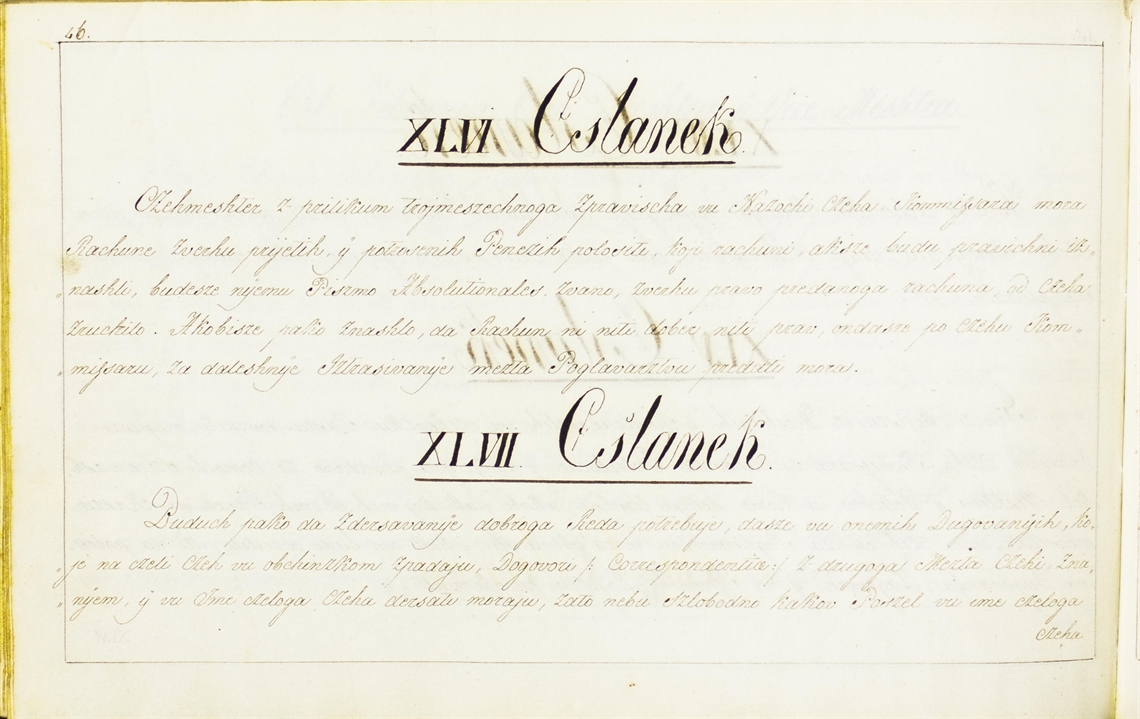 46.
XLVI Cslanek.
Czehmeshter z prilikum trojmeszechnoga zpravischa vu Nazochi Czeha Kommiszara mora
Rachune zverhu prijetih, y potrosenih Penezih polositi, koji rachuni, aksze budu pravichni iz„
„nashli, budesze nyemu Piszmo Absolutionales zvano, zverhu pravo predanoga rachuna, od Czeha
zruchilo. Akobisze pako znashlo, da Rachun ni niti dober niti prav, ondasze po Czehu Kom„
„miszaru, za daleshnye Iztrasivanye mezta Poglavarztvu predati mora.
XLVII. Cslanek.
Buduch pako da zdersavanye dobroga Reda potrebuje, dasze vu onemeh Dugovanyih, ko„
„je na czeli Czeh vu obchinzkom zpadaju, Dogovori /: Correspondentia :/ z drugoga Mezta Czehi zna„
„nyem, y vu Ime czeloga Czeha dersati moraju, zato nebu szlobodno kakov Poszel vu ime czeloga
Czeha